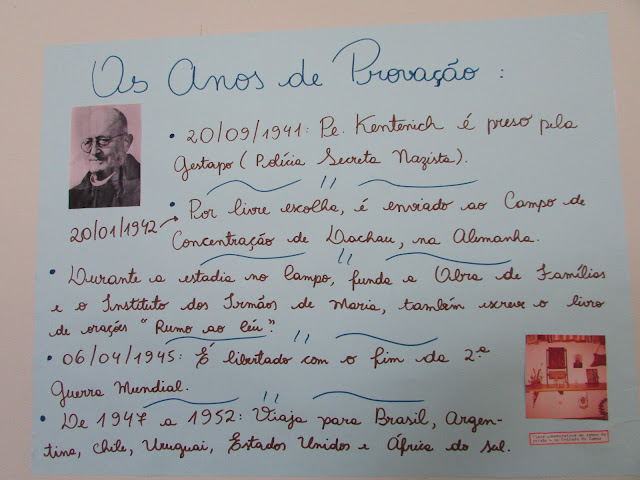 Os Anos de Provação:
• 20/09/1941: Pe. Kentenich é preso pela
Gestapo (Polícia Secreta Nazista).
"
20/01/1942 → • Por livre escolha, é enviado ao Campo de
Concentração de Dachau, na Alemanha.
"
• Durante a estadia no Campo, funda a Obra de Famílias
e o Instituto dos Irmãos de Maria, também escreve o livro
de orações "Rumo ao Céu".
"
• 06/04/1945: É libertado com o fim da 2.ª
Guerra Mundial.
"
• De 1947 a 1952: Viaja para Brasil, Argen-
tina, Chile, Uruguai, Estados Unidos e África do Sul.